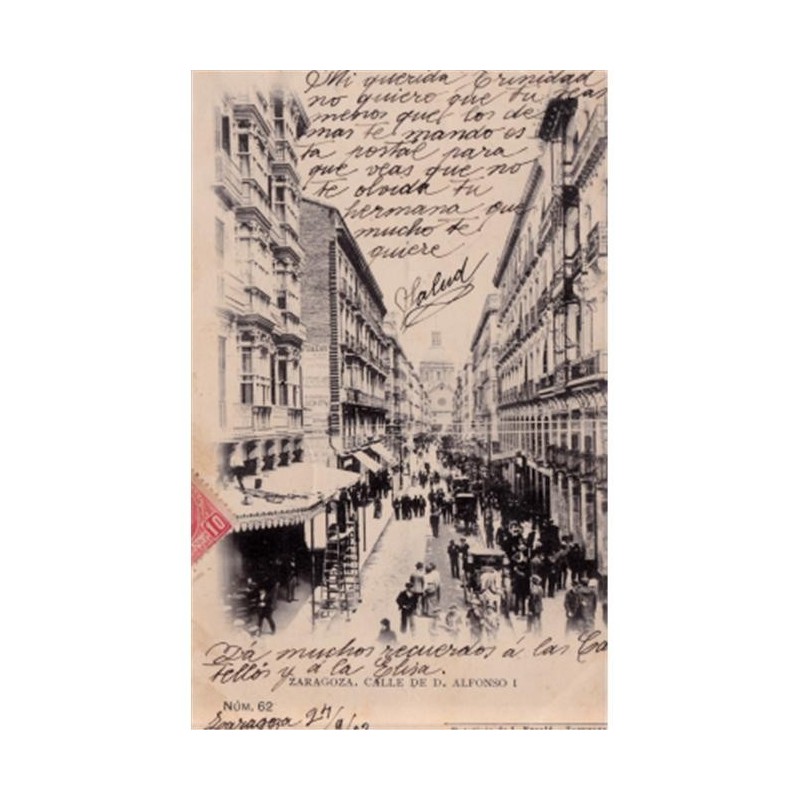 Mi querida Trinidad
no quiero que tu seas
menos que los de
mas te mando es
ta postal para
que veas que no
te olvida tu
hermana que
mucho te
quiere
Salud
10
Dá muchos recuerdos á las Ca
tellos y á la Elisa.
ZARAGOZA. CALLE DE D. ALFONSO I
NÚM. 62
Zaragoza